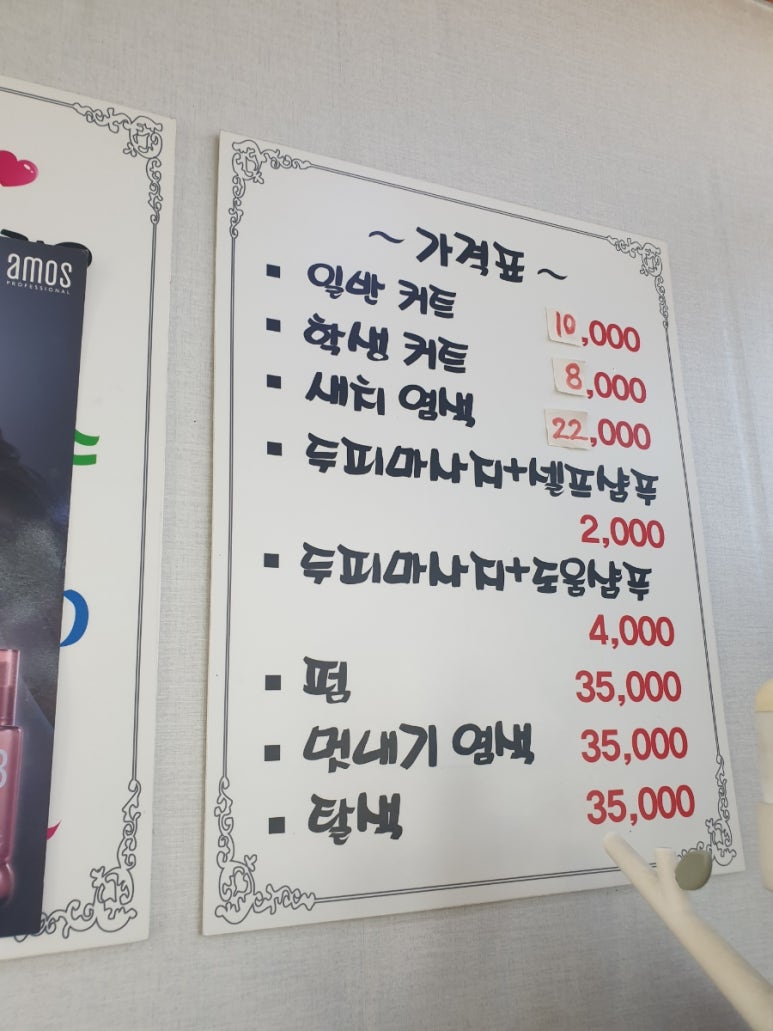 amos
PROFESSIONAL
~ 가격표 ~
▪ 일반 커트 10,000
▪ 학생 커트 8,000
▪ 새치 염색 22,000
▪ 두피마사지+셀프샴푸
2,000
▪ 두피마사지+도움샴푸
4,000
▪ 펌 35,000
▪ 멋내기 염색 35,000
▪ 탈색 35,000